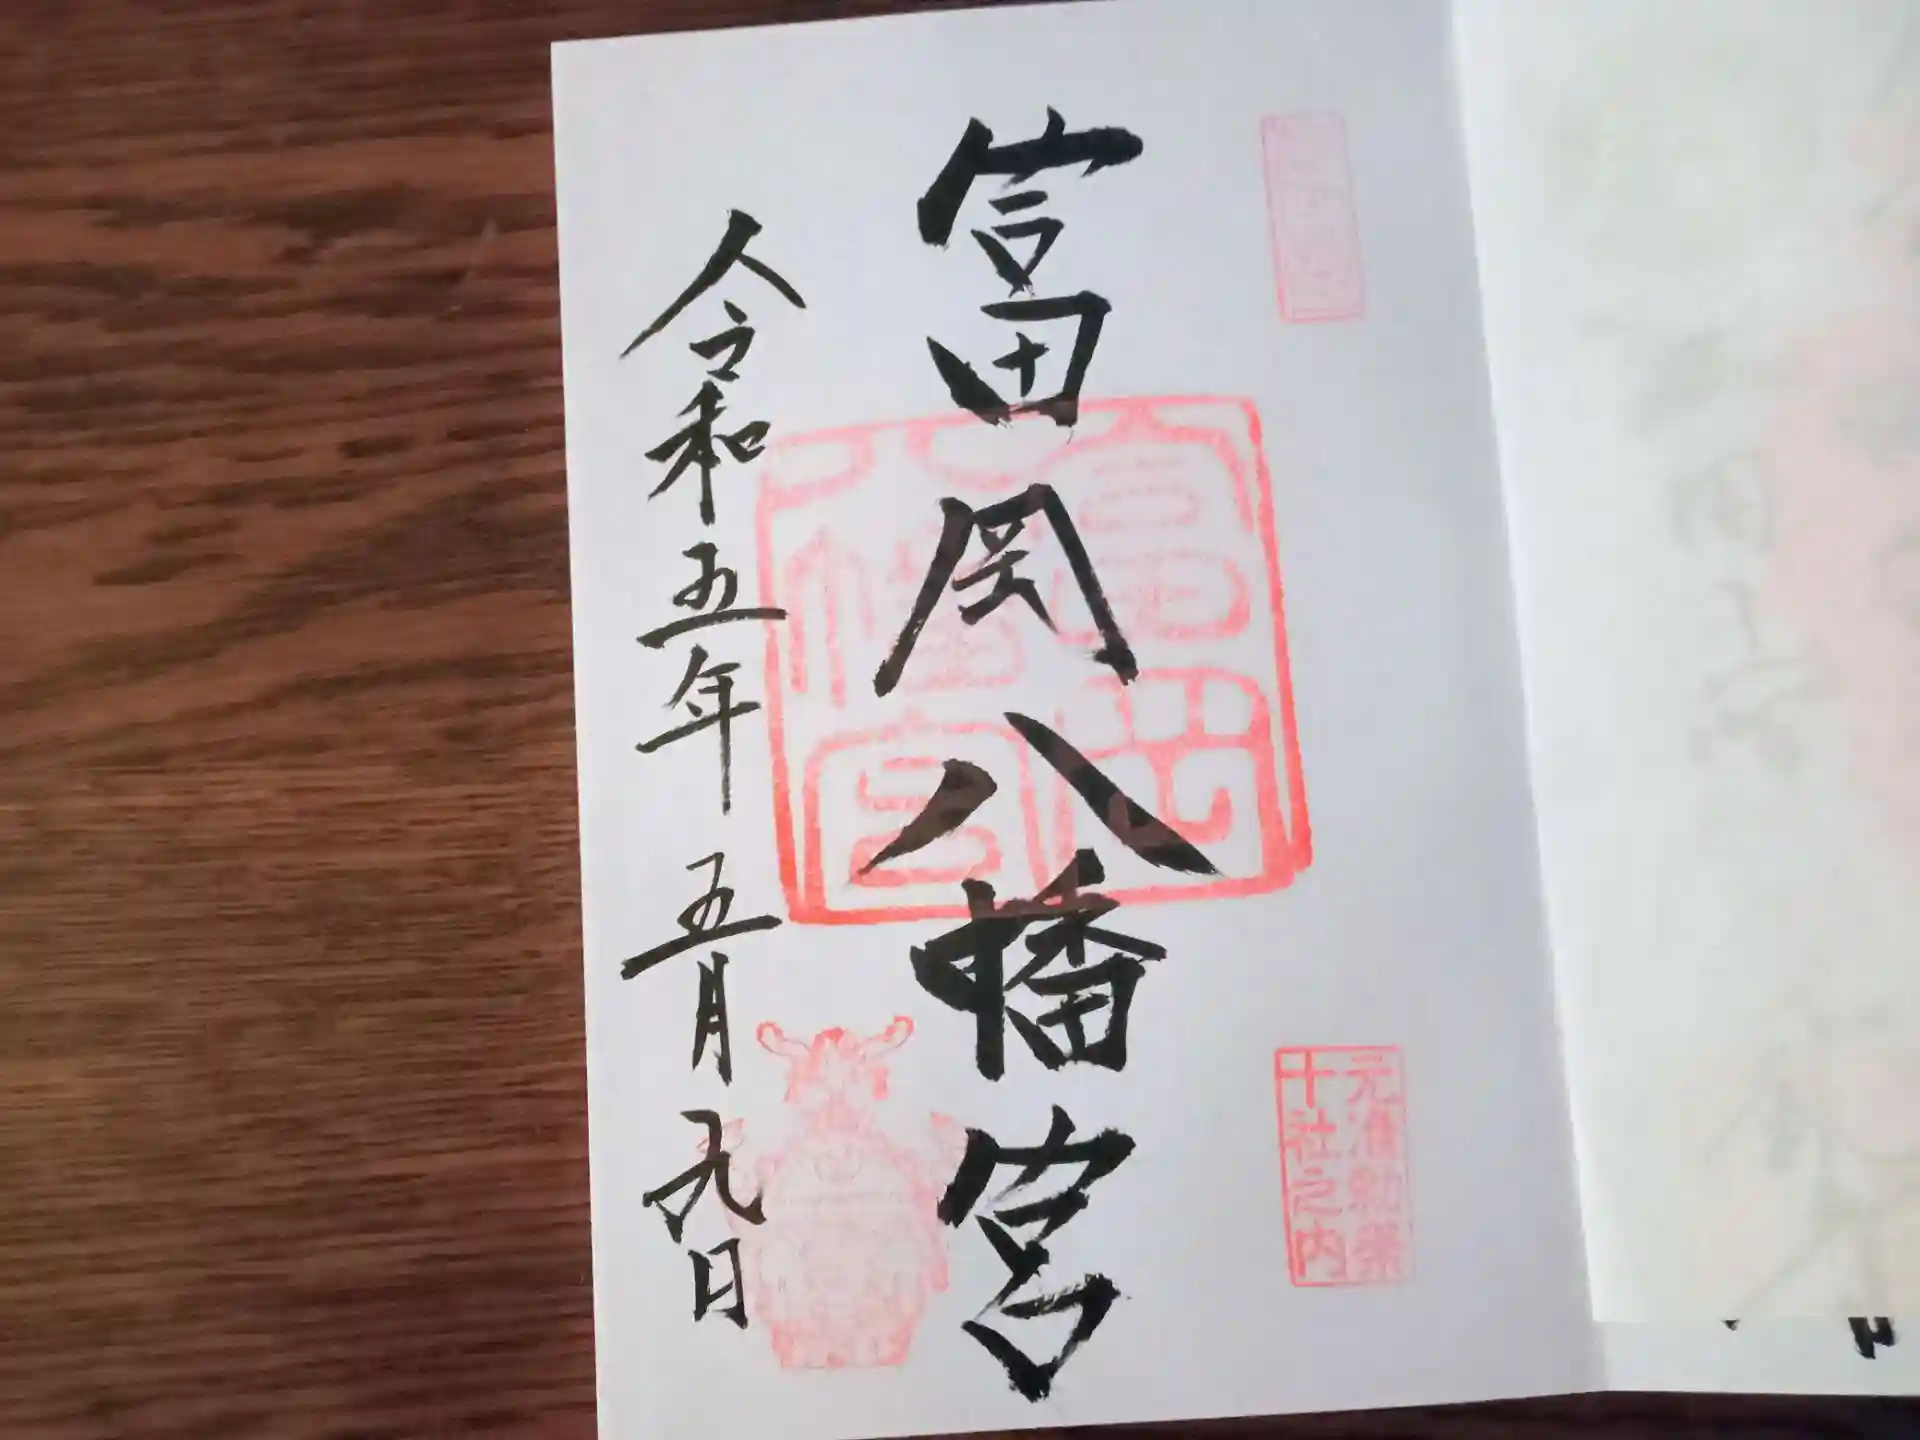 元准勅祭
十社之内
富岡八幡宮
富岡
八幡宮
令和五年 五月九日